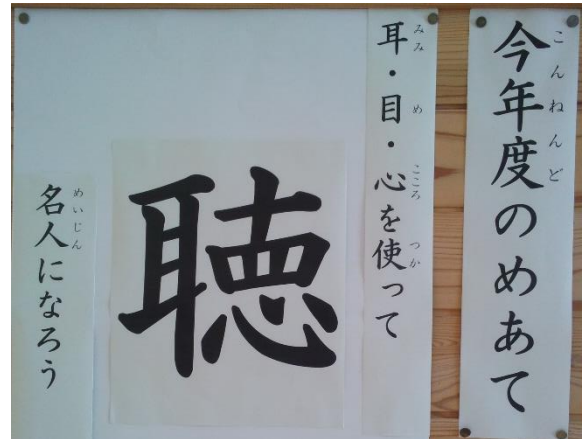 今年度のめあて
こんねんど
耳・目・心を使って
みみ め こころ つか
聴
名人になろう
めいじん